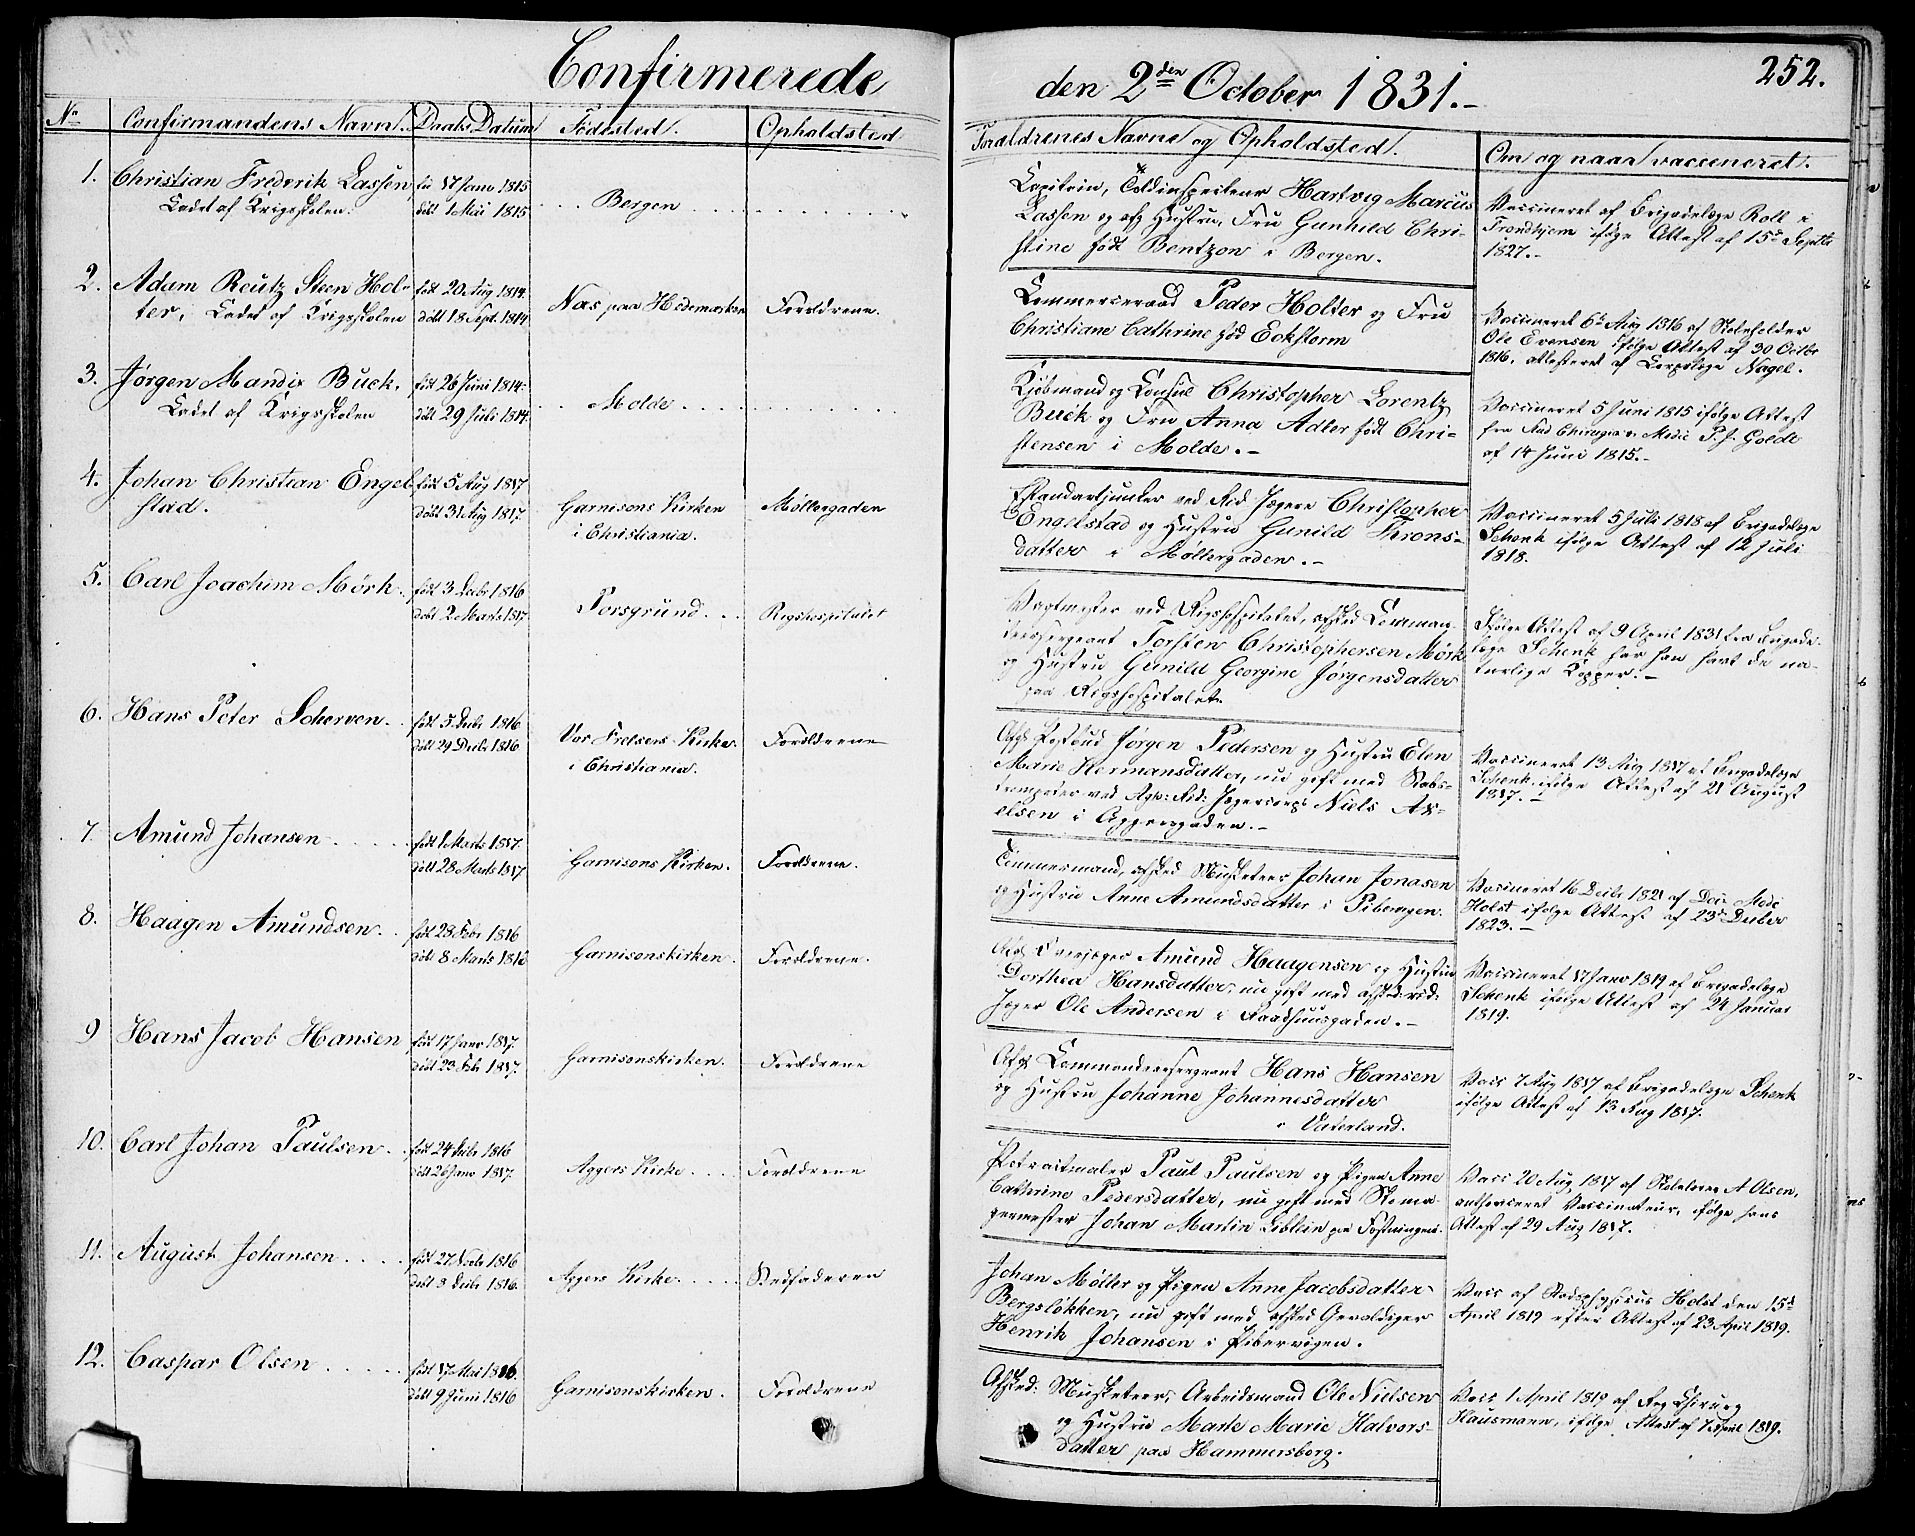 Confirmerede
den 2den October 1831.-
252.
No Confirmandens Navn. Daabs Datum Fødested. Opholdsted
Forældrenes Navne og Opholdsted. Om og naar vaccineret.
1. Christian Frederik Lassen
Cadet af Krigsskolen.
fød 17 Janv 1815
døbt 1 Mai 1815
Bergen
Capitein, Toldinspecteur Hartvig Marcus
Lassen og afg Hustru, Fru Gunhild Chri-
stine født Bentzon i Bergen.
Vaccineret af Brigadelæge Roll i
Trondhjem ifølge Attest af 15de Septb
1827.-
2. Adam Reutz Steen Hol-
ter, Cadet af Krigsskolen
født 20 Aug 1814
døbt 18 Sept. 1814
Næs paa Hedemarken
Forældrene.
Commerceraad Peder Holter og Fru
Christiane Cathrine fød Eckstorm
Vaccineret 6te Aug 1816 af Skoleholder
Ole Evensen ifølge Attest af 30 Octbr
1816, attesteret af Corpslæge Nagel.
3. Jørgen Mandix Buck,
Cadet af Krigsskolen
født 26 Juni 1814
døbt 29 Juli 1814
Molde
Kjøbmand og Consul Christopher Lorentz
Buck og Fru Anna Adler født Chri-
stensen i Molde.-
Vaccineret 5 Juni 1815 ifølge Attest
fra Chirurgiæ Medic P. J. Goldt
af 14 Juni 1815.-
4. Johan Christian Engel-
stad.
født 5 Aug 1817
døbt 31 Aug 1817
Garnisons Kirken
i Christiania.
Møllergaden
Estandartjunker ved Rid. Jægere Christopher
Engelstad og Hustru Gunild Throns-
datter i Møllergaden.-
Vaccineret 5 Juli 1818 af Brigadelæge
Schenk ifølge Attest af 12 Juli
1818.
5. Carl Joachim Mørk
født 3 Decbr 1816
døbt 2 Marts 1817
Porsgrund
Rigshospitalet
Vagtmester ved Rigshospitalet, afsked Comman-
deersergeant Torsten Christophersen Mørk
og Hustru Gunild Georgine Jørgensdatter
paa Rigshospitalet.
Ifølge Attest af 9 April 1831 fra Brigade-
læge Schenk har han havt de na-
turlige Kopper.-
6. Hans Peter Scherven.
født 5 Decbr 1816
døbt 29 Decbr 1816
Vor Frelsers Kirke.
i Christiania.
Forældrene
Afg Postbud Jørgen Pedersen og Hustru Elen
Marie Hermansdatter, nu gift med Stabs-
trompeter ved Agh: Rid: Jægercorps Niels Ax-
elsen i Aggersgaden.-
Vaccineret 13 Aug 1817 af Brigadelæge
Schenk ifølge Attest af 21 August
1817.-
7. Amund Johansen
født 1 Marts 1817.
døbt 28 Marts 1817
Garnisons Kirken.
Forældrene.
Tømmermand, afsked Musketeer Johan Jonasen
og Hustru Anne Amundsdatter i Pibervigen.
Vaccineret 16 Decbr 1821 af Doc Medc
Holst ifølge Attest af 23de Decbr
1823.-
8. Haagen Amundsen.
født 28 Febr 1816
døbt 8 Marts 1816
Garnisonskirken.
Forældrene.
Afg Amund Haagensen og Hustru
Dorthea Hansdatter, nu gift med afsked rid:
Jæger Ole Andersen i Raadhuusgaden.-
Vaccineret 17 Janv 1819 af Brigadelæge
Schenk ifølge Attest af 24 Januar
1819.
9 Hans Jacob Hansen
født 17 Janv 1817.
døbt 23 Feb 1817.
Garnisonskirken.
Forældrene
Afg Commandeersergeant Hans Hansen
og Hustru Johanne Johannesdatter
i Vaterland.
Vacc 7 Aug 1817 af Brigadelæge Schenk
ifølge Attest af 13 Aug 1817.
10. Carl Johan Paulsen
født 24 Decbr 1816
døbt 26 Janv 1817.
Aggers Kirke
Forældrene
Portraitmaler Paul Paulsen og Pigen Anne
Cathrine Pedersdatter, nu gift med
Johan Martin Liblein paa Fæstningen
Vacc 20 Aug 1817 af A Olsen,
authoriseret Vaccinateur, ifølge hans
Attest af 29 Aug 1817.
11. August Johansen
født 27 Novbr 1816
døbt 8 Decbr 1816.
Aggers Kirke.
Stedfaderen
Johan Møller og Pigen Anne Jacobsdatter
Bergsløkken, nu gift med afsked Gevaldiger
Henrik Johansen i Pibervigen.
Vacc af Stadsphysicus Holst den 15d
April 1819 efter Attest af 23 April 1819.
12. Caspar Olsen
født 17 Mai 1816.
døbt 9 Juni 1816
Garnisonskirken.
Forældrene
Afsked: Musketeer, Arbeidsmand Ole Nielsen
og Hustru Marte Marie Halvors-
datter paa Hammersborg.
Vacc 1 April 1819 af Reg Chirurg
Hausmann, ifølge Attest af 7 April 1819.